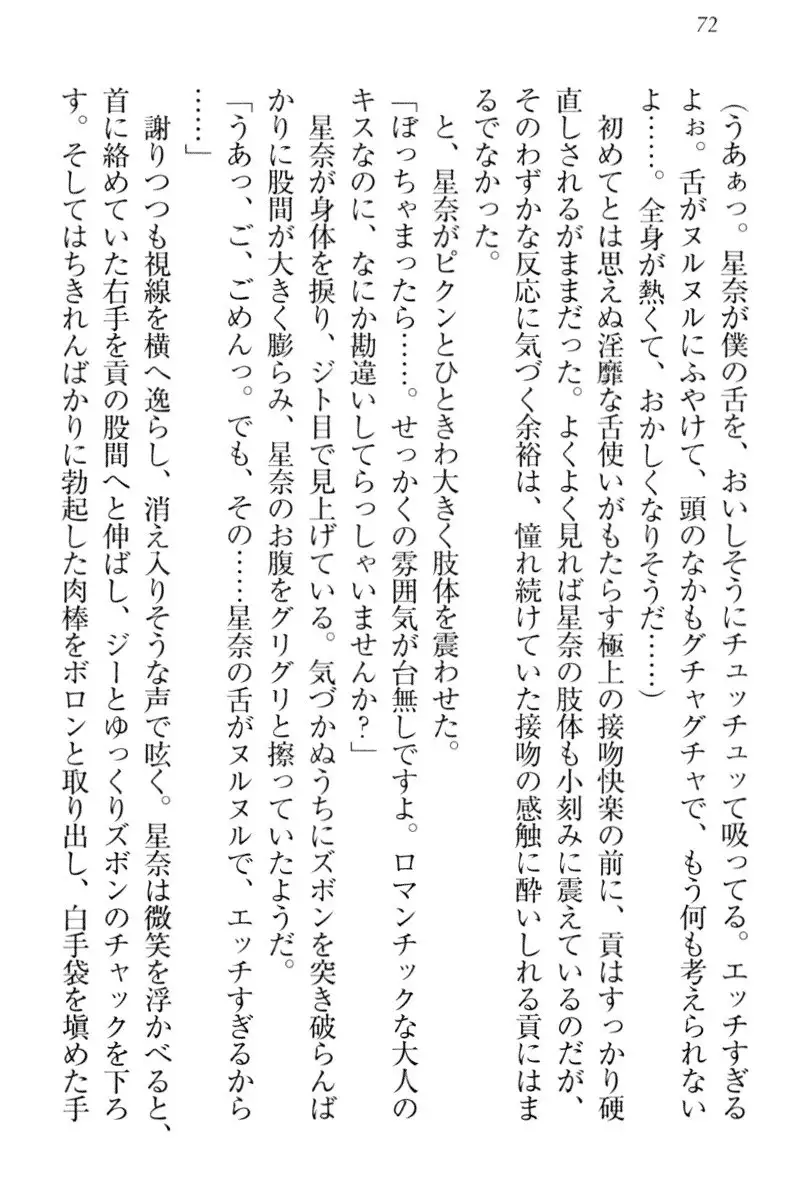 72
(うあぁっ。星奈が僕の舌を、おいしそうにチュッチュッて吸ってる。エッチすぎる
よぉ。舌がヌルヌルにふやけて、頭のなかもグチャグチャで、もう何も考えられない
よ……。全身が熱くて、おかしくなりそうだ……)
　初めてとは思えぬ淫靡な舌使いがもたらす極上の接吻快楽の前に、貢はすっかり硬
直しされるがままだった。よくよく見れば星奈の肢体も小刻みに震えているのだが、
そのわずかな反応に気づく余裕は、憧れ続けていた接吻の感触に酔いしれる貢にはま
るでなかった。
　と、星奈がピクンとひときわ大きく肢体を震わせた。
「ぼっちゃまったら……。せっかくの雰囲気が台無しですよ。ロマンチックな大人の
キスなのに、なにか勘違いしてらっしゃいませんか?」
　星奈が身体を捩り、ジト目で見上げている。気づかぬうちにズボンを突き破らんば
かりに股間が大きく膨らみ、星奈のお腹をグリグリと擦っていたようだ。
「うあっ、ご、ごめんっ。でも、その……星奈の舌がヌルヌルで、エッチすぎるから
……」
　謝りつつも視線を横へ逸らし、消え入りそうな声で呟く。星奈は微笑を浮かべると、
首に絡めていた右手を貢の股間へと伸ばし、ジーとゆっくりズボンのチャックを下ろ
す。そしてはちきれんばかりに勃起した肉棒をボロンと取り出し、白手袋を填めた手